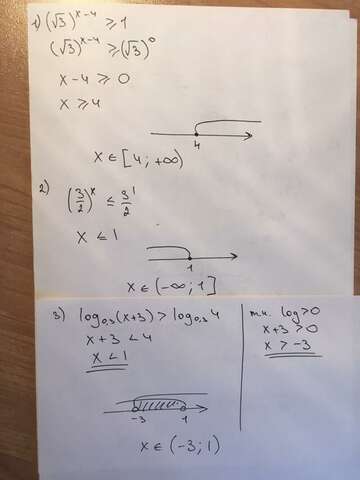 1) (√3)^(x-4) ≥ 1
(√3)^(x-4) ≥ (√3)^0
x-4 ≥ 0
x ≥ 4
4
x ∈ [4; +∞)
2) (3/2)^x ≤ 3/2^1
x ≤ 1
1
x ∈ (-∞; 1]
3) log_0,3(x+3) > log_0,3 4
x+3 < 4
x < 1
т.к. log > 0
x+3 > 0
x > -3
-3 1
x ∈ (-3; 1)